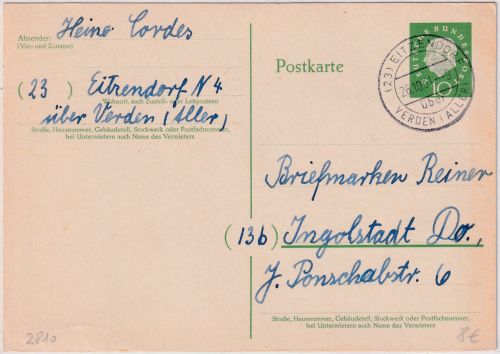 Absender:
(Vor- und Zuname)
Heino Cordes
(23) Eitzendorf N4
Wohnort, auch Zustell- oder Leitpostamt
über Verden (Aller)
Straße, Hausnummer, Gebäudeteil, Stockwerk oder Postfachnummer,
bei Untermietern auch Name des Vermieters
Postkarte
DEUTSCHE BUNDESPOST
10
(23) EITZENDORF
über
VERDEN (ALLER)
Briefmarken Reiner
(13b) Ingolstadt Do.,
J. Ponschabstr. 6
Straße, Hausnummer, Gebäudeteil, Stockwerk oder Postfachnummer,
bei Untermietern auch Name des Vermieters
2810
8€